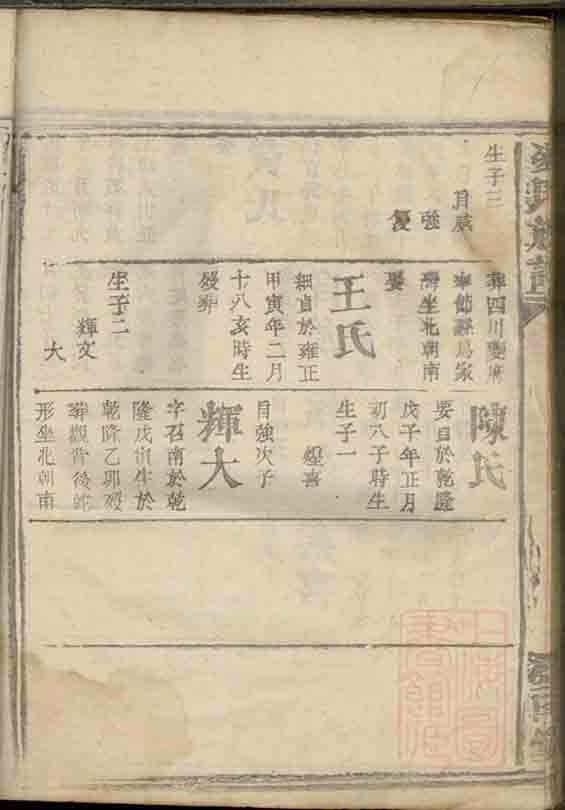 生子三
目
強
葬四川夔府
奉節縣
坐北朝南
娶
王氏
於雍正
甲寅年二月
十八亥時生
歿葬
生子二
輝文
大
陳氏
要自於乾隆
戊子年正月
初八子時生
生子一
煌喜
輝大
目強次子
字召南於乾
隆戊寅生於
乾隆乙卯歿
葬觀音後
形坐北朝南
上海圖
書館藏